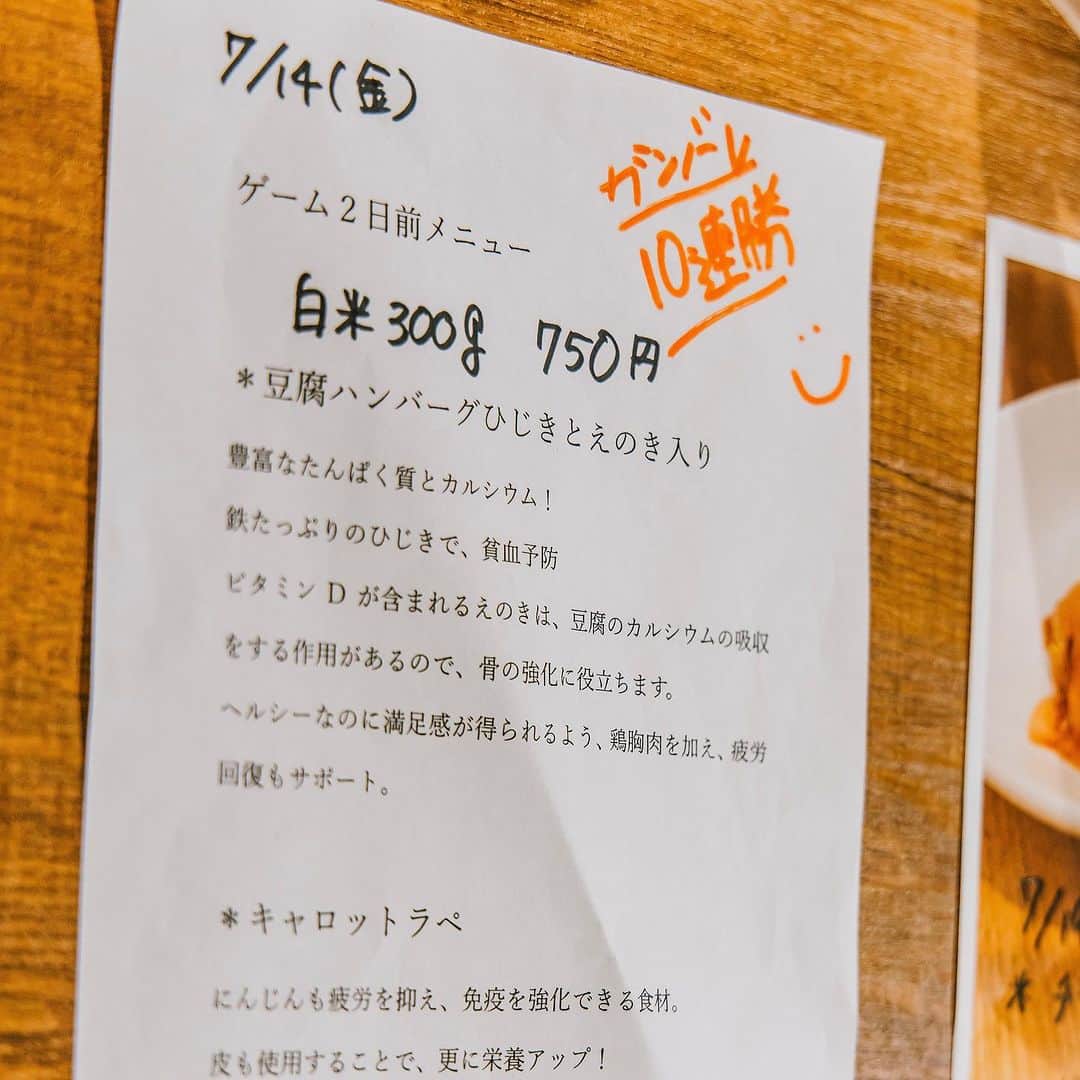 7/14(金)
ガンバレ
10連勝
ゲーム2日前メニュー
白米300g 750円
*豆腐ハンバーグひじきとえのき入り
豊富なたんぱく質とカルシウム！
鉄たっぷりのひじきで、貧血予防
ビタミン D が含まれるえのきは、豆腐のカルシウムの吸収
をする作用があるので、骨の強化に役立ちます。
ヘルシーなのに満足感が得られるよう、鶏胸肉を加え、疲労
回復もサポート。
*キャロットラペ
にんじんも疲労を抑え、免疫を強化できる食材。
皮も使用することで、更に栄養アップ！